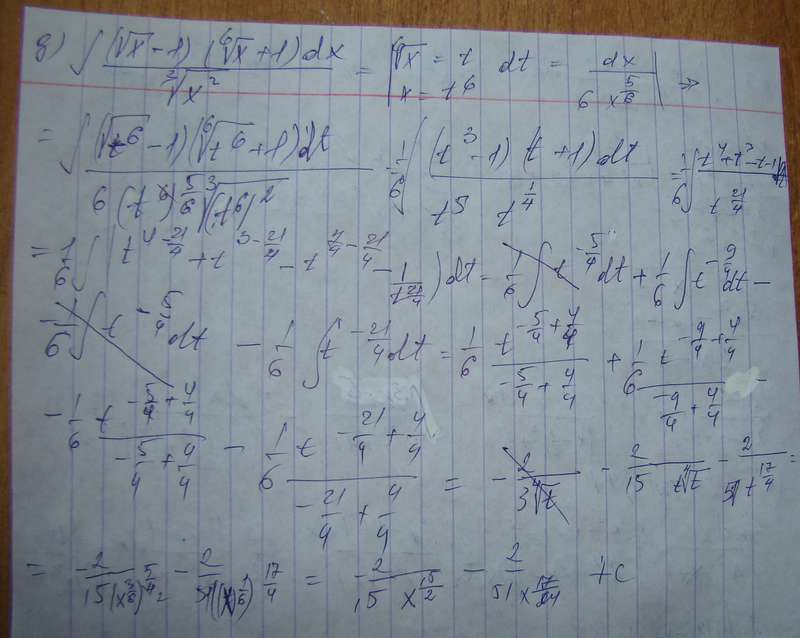 g) ∫ (√x - 1) (⁶√x + 1) dx / ³√x² = | ⁶√x = t dt = dx / 6 x^(5/6) x = t⁶ | ⇒
= ∫ (√t⁶ - 1) (⁶√t⁶ + 1) dt / 6 (t⁶)^(5/6) ³√(t⁶)² = 1/6 ∫ (t³ - 1) (t + 1) dt / t⁵ t^(1/4) = 1/6 ∫ t⁴ + t³ - t - 1 / t^(21/4)
= 1/6 ∫ ( t^(4 - 21/4) + t^(3 - 21/4) - t^(4/4 - 21/4) - 1 / t^(21/4) ) dt = 1/6 ∫ t^(-5/4) dt + 1/6 ∫ t^(-9/4) dt -
- 1/6 ∫ dt - 1/6 ∫ t^(-21/4) dt = 1/6 t^(-5/4 + 4/4) / -5/4 + 4/4 + 1/6 t^(-9/4 + 4/4) / -9/4 + 4/4 -
- 1/6 t^(-5/4 + 4/4) / -5/4 + 4/4 - 1/6 t^(-21/4 + 4/4) / -21/4 + 4/4 = - 2 / 3 ⁴√t - 2 / 15 t ⁴√t - 2 / 51 t^(17/4) =
= -2 / 15 - 2 / 51 = -2 / 15 x^(15/2) - 2 / 51 + C